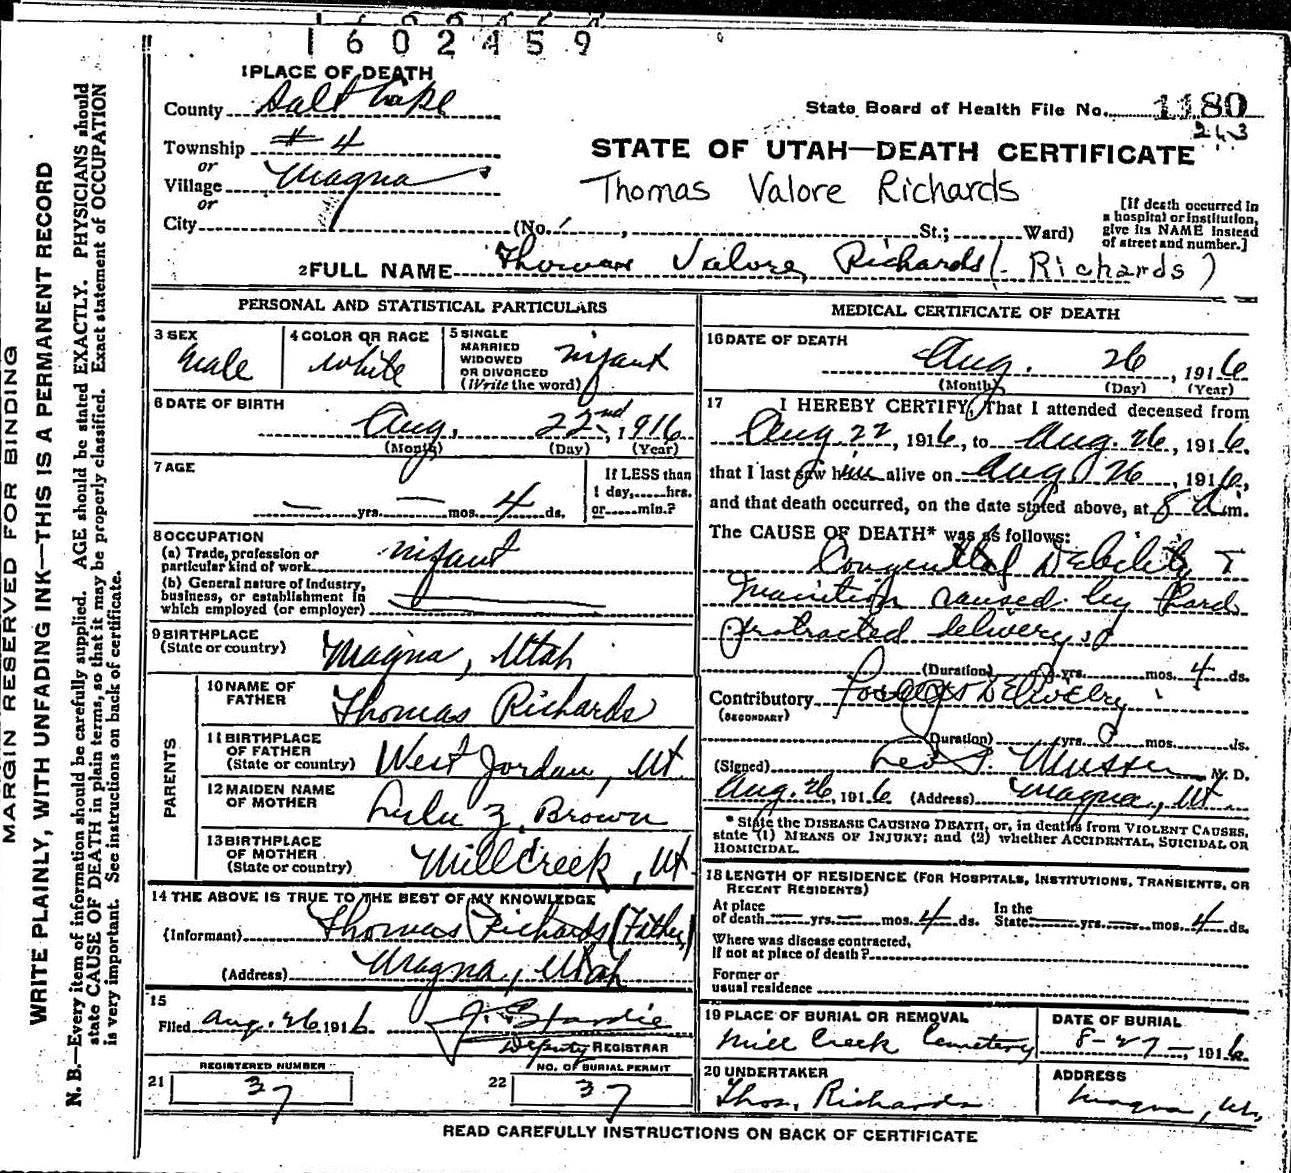 1602459
1 PLACE OF DEATH
County Salt Lake
State Board of Health File No. 1180
243
Township #4
or
Village Magna
or
City (No. , St.; Ward)
STATE OF UTAH—DEATH CERTIFICATE
Thomas Valore Richards
[If death occurred in
a hospital or institution,
give its NAME instead
of street and number.]
2 FULL NAME Thomas Valore Richards (Richards)
PERSONAL AND STATISTICAL PARTICULARS
3 SEX
Male
4 COLOR OR RACE
White
5 SINGLE
MARRIED
WIDOWED
OR DIVORCED
(Write the word)
Infant
6 DATE OF BIRTH
Aug. 22nd, 1916
(Month) (Day) (Year)
7 AGE
— yrs. — mos. 4 ds.
If LESS than
1 day, hrs.
or min.?
8 OCCUPATION
(a) Trade, profession or
particular kind of work infant
(b) General nature of Industry,
business, or establishment in
which employed (or employer)
9 BIRTHPLACE
(State or country) Magna, Utah
PARENTS
10 NAME OF
FATHER Thomas Richards
11 BIRTHPLACE
OF FATHER
(State or country) West Jordan, Ut
12 MAIDEN NAME
OF MOTHER Lulu Z. Brown
13 BIRTHPLACE
OF MOTHER
(State or country) Mill Creek, Ut.
14 THE ABOVE IS TRUE TO THE BEST OF MY KNOWLEDGE
(Informant) Thomas Richards (Father)
(Address) Magna, Utah
15
Filed Aug. 26 1916
Deputy REGISTRAR
REGISTERED NUMBER
21 37
NO. OF BURIAL PERMIT
22 37
MEDICAL CERTIFICATE OF DEATH
16 DATE OF DEATH
Aug. 26, 1916
(Month) (Day) (Year)
17 I HEREBY CERTIFY, That I attended deceased from
Aug 22, 1916, to Aug. 26, 1916.
that I last saw him alive on Aug 26, 1916,
and that death occurred, on the date stated above, at 8 a.m.
The CAUSE OF DEATH* was as follows:
Congenital Debility &
Inanition caused by hard
protracted delivery
(Duration) yrs. mos. 4 ds.
Contributory Forceps Delivery
(SECONDARY)
(Duration) yrs. mos. ds.
(Signed) Musser M. D.
Aug. 26, 1916 (Address) Magna, Ut.
* State the DISEASE CAUSING DEATH, or, in deaths from VIOLENT CAUSES,
state (1) MEANS OF INJURY; and (2) whether ACCIDENTAL, SUICIDAL OR
HOMICIDAL.
18 LENGTH OF RESIDENCE (FOR HOSPITALS, INSTITUTIONS, TRANSIENTS, OR
RECENT RESIDENTS)
At place
of death — yrs. — mos. 4 ds. In the
State yrs. mos. 4 ds.
Where was disease contracted,
If not at place of death?
Former or
usual residence
19 PLACE OF BURIAL OR REMOVAL
Mill Creek Cemetery
DATE OF BURIAL
8-27-, 1916
20 UNDERTAKER
Thos. Richards
ADDRESS
Magna, Ut.
READ CAREFULLY INSTRUCTIONS ON BACK OF CERTIFICATE
MARGIN RESERVED FOR BINDING
WRITE PLAINLY, WITH UNFADING INK—THIS IS A PERMANENT RECORD
N. B.—Every item of information should be carefully supplied. AGE should be stated EXACTLY. PHYSICIANS should
state CAUSE OF DEATH in plain terms, so that it may be properly classified. Exact statement of OCCUPATION
is very important. See instructions on back of certificate.